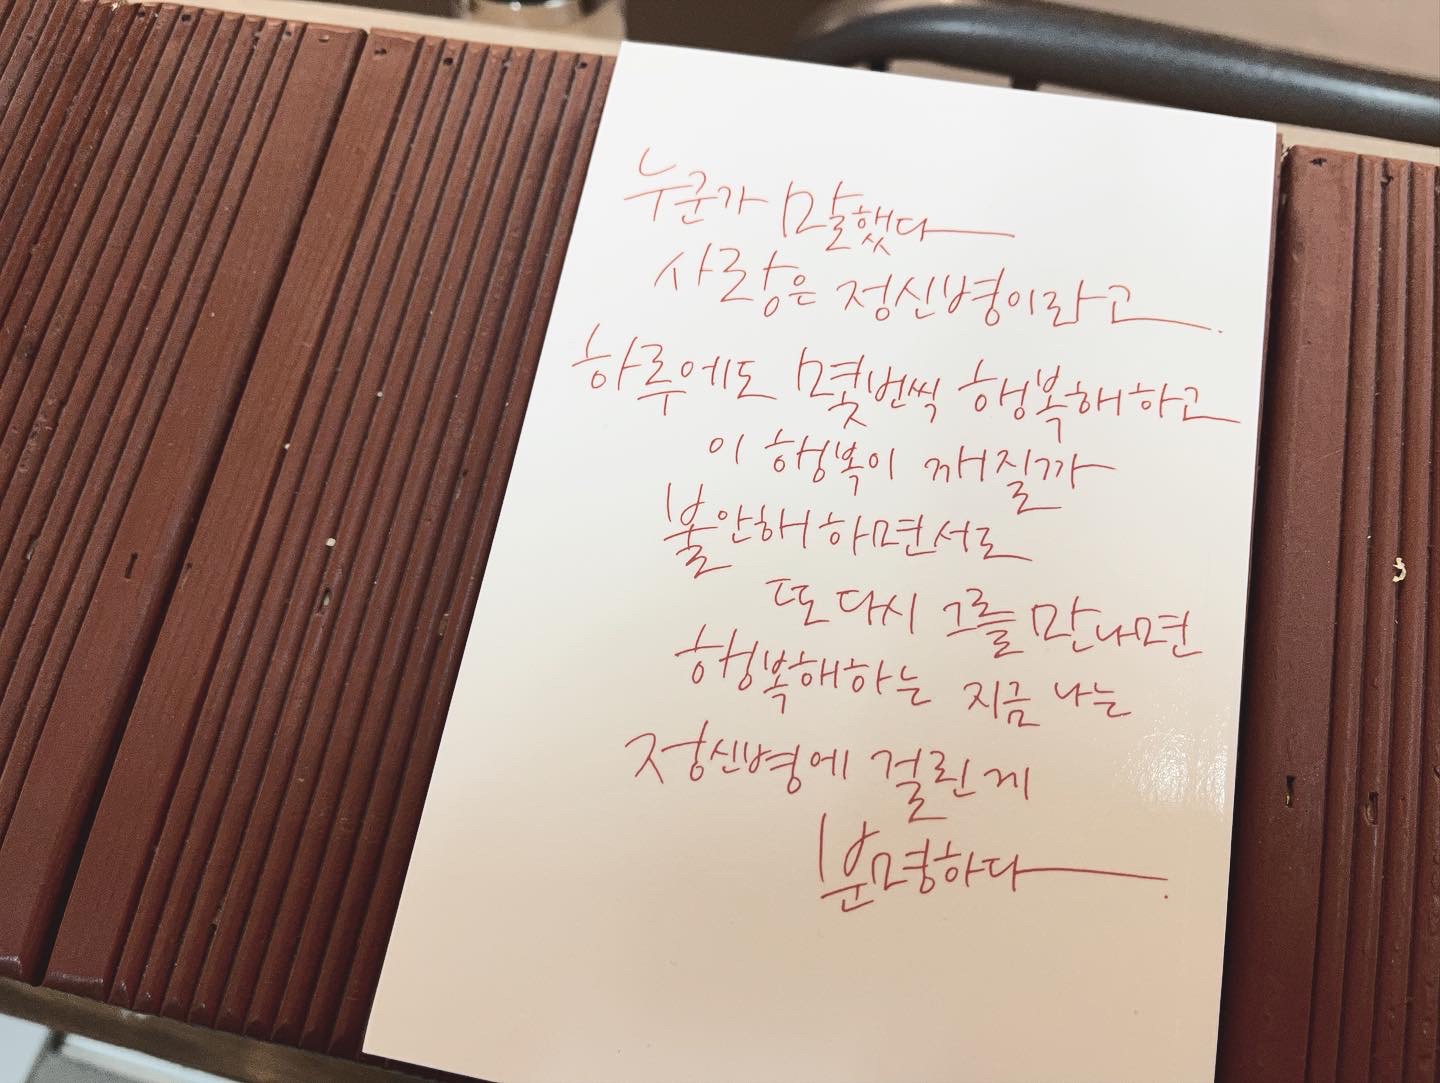 누군가 말했다
사랑은 정신병이라고.
하루에도 몇번씩 행복해하고
이 행복이 깨질까
불안해 하면서도
또 다시 그를 만나면
행복해하는 지금 나는
정신병에 걸린게
분명하다.